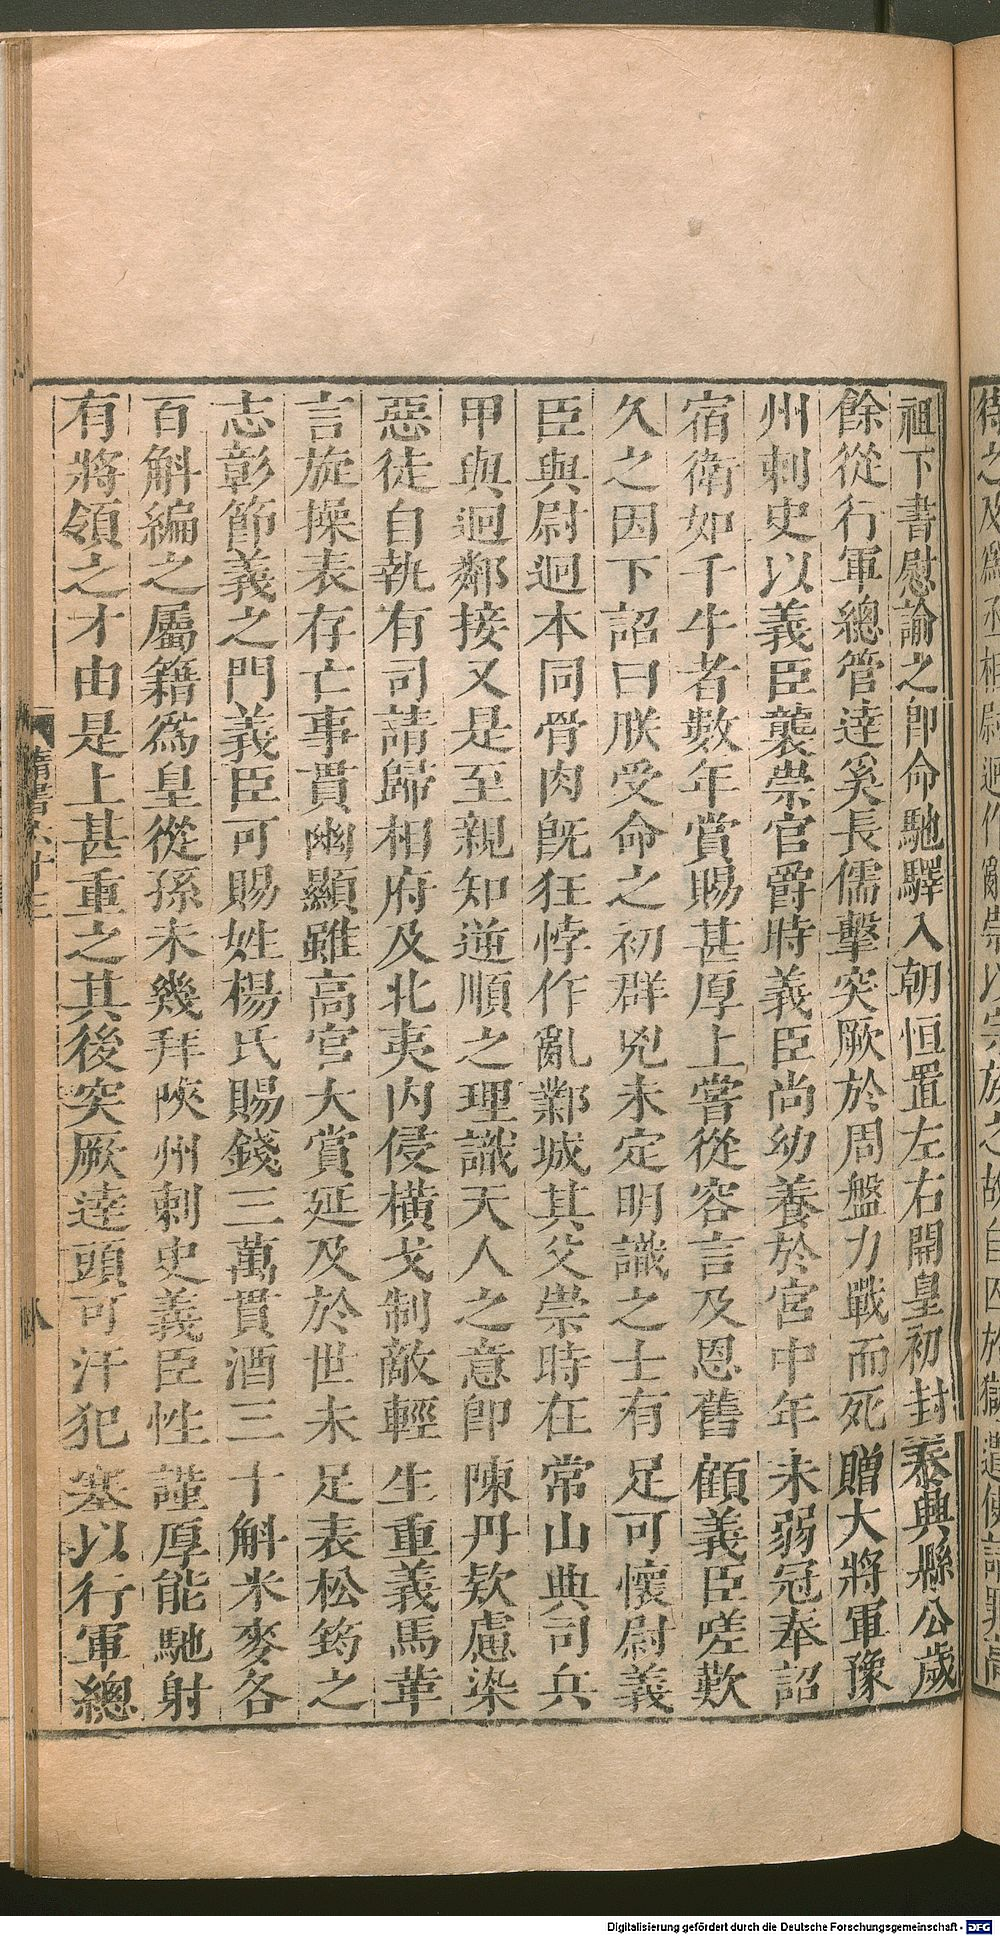 祖下書慰諭之卽命馳驛入朝恒置左右開皇初封泰興縣公歲
餘從行軍總管達奚長儒擊突厥於周盤力戰而死贈大將軍豫
州刺史以義臣襲崇官爵時義臣尚幼養於宮中年未弱冠奉詔
宿衛如千牛者數年賞賜甚厚上嘗從容言及恩舊顧義臣嗟歎
久之因下詔曰朕受命之初群兇未定明識之士有足可懷尉義
臣與尉迥本同骨肉旣狂悖作亂鄴城其父崇時在常山典司兵
甲與迥鄰接又是至親知逆順之理識天人之意卽陳丹欵慮染
惡徒自執有司請歸相府及北夷內侵橫戈制敵輕生重義馬革
言旋操表存亡事貫幽顯雖高官大賞延及於世未足表松筠之
志彰節義之門義臣可賜姓楊氏賜錢三萬貫酒三十斛米麥各
百斛編之屬籍爲皇從孫未幾拜陝州刺史義臣性謹厚能馳射
有將領之才由是上甚重之其後突厥達頭可汗犯塞以行軍總
隋書六十三
八
Digitalisierung gefördert durch die Deutsche Forschungsgemeinschaft - DFG